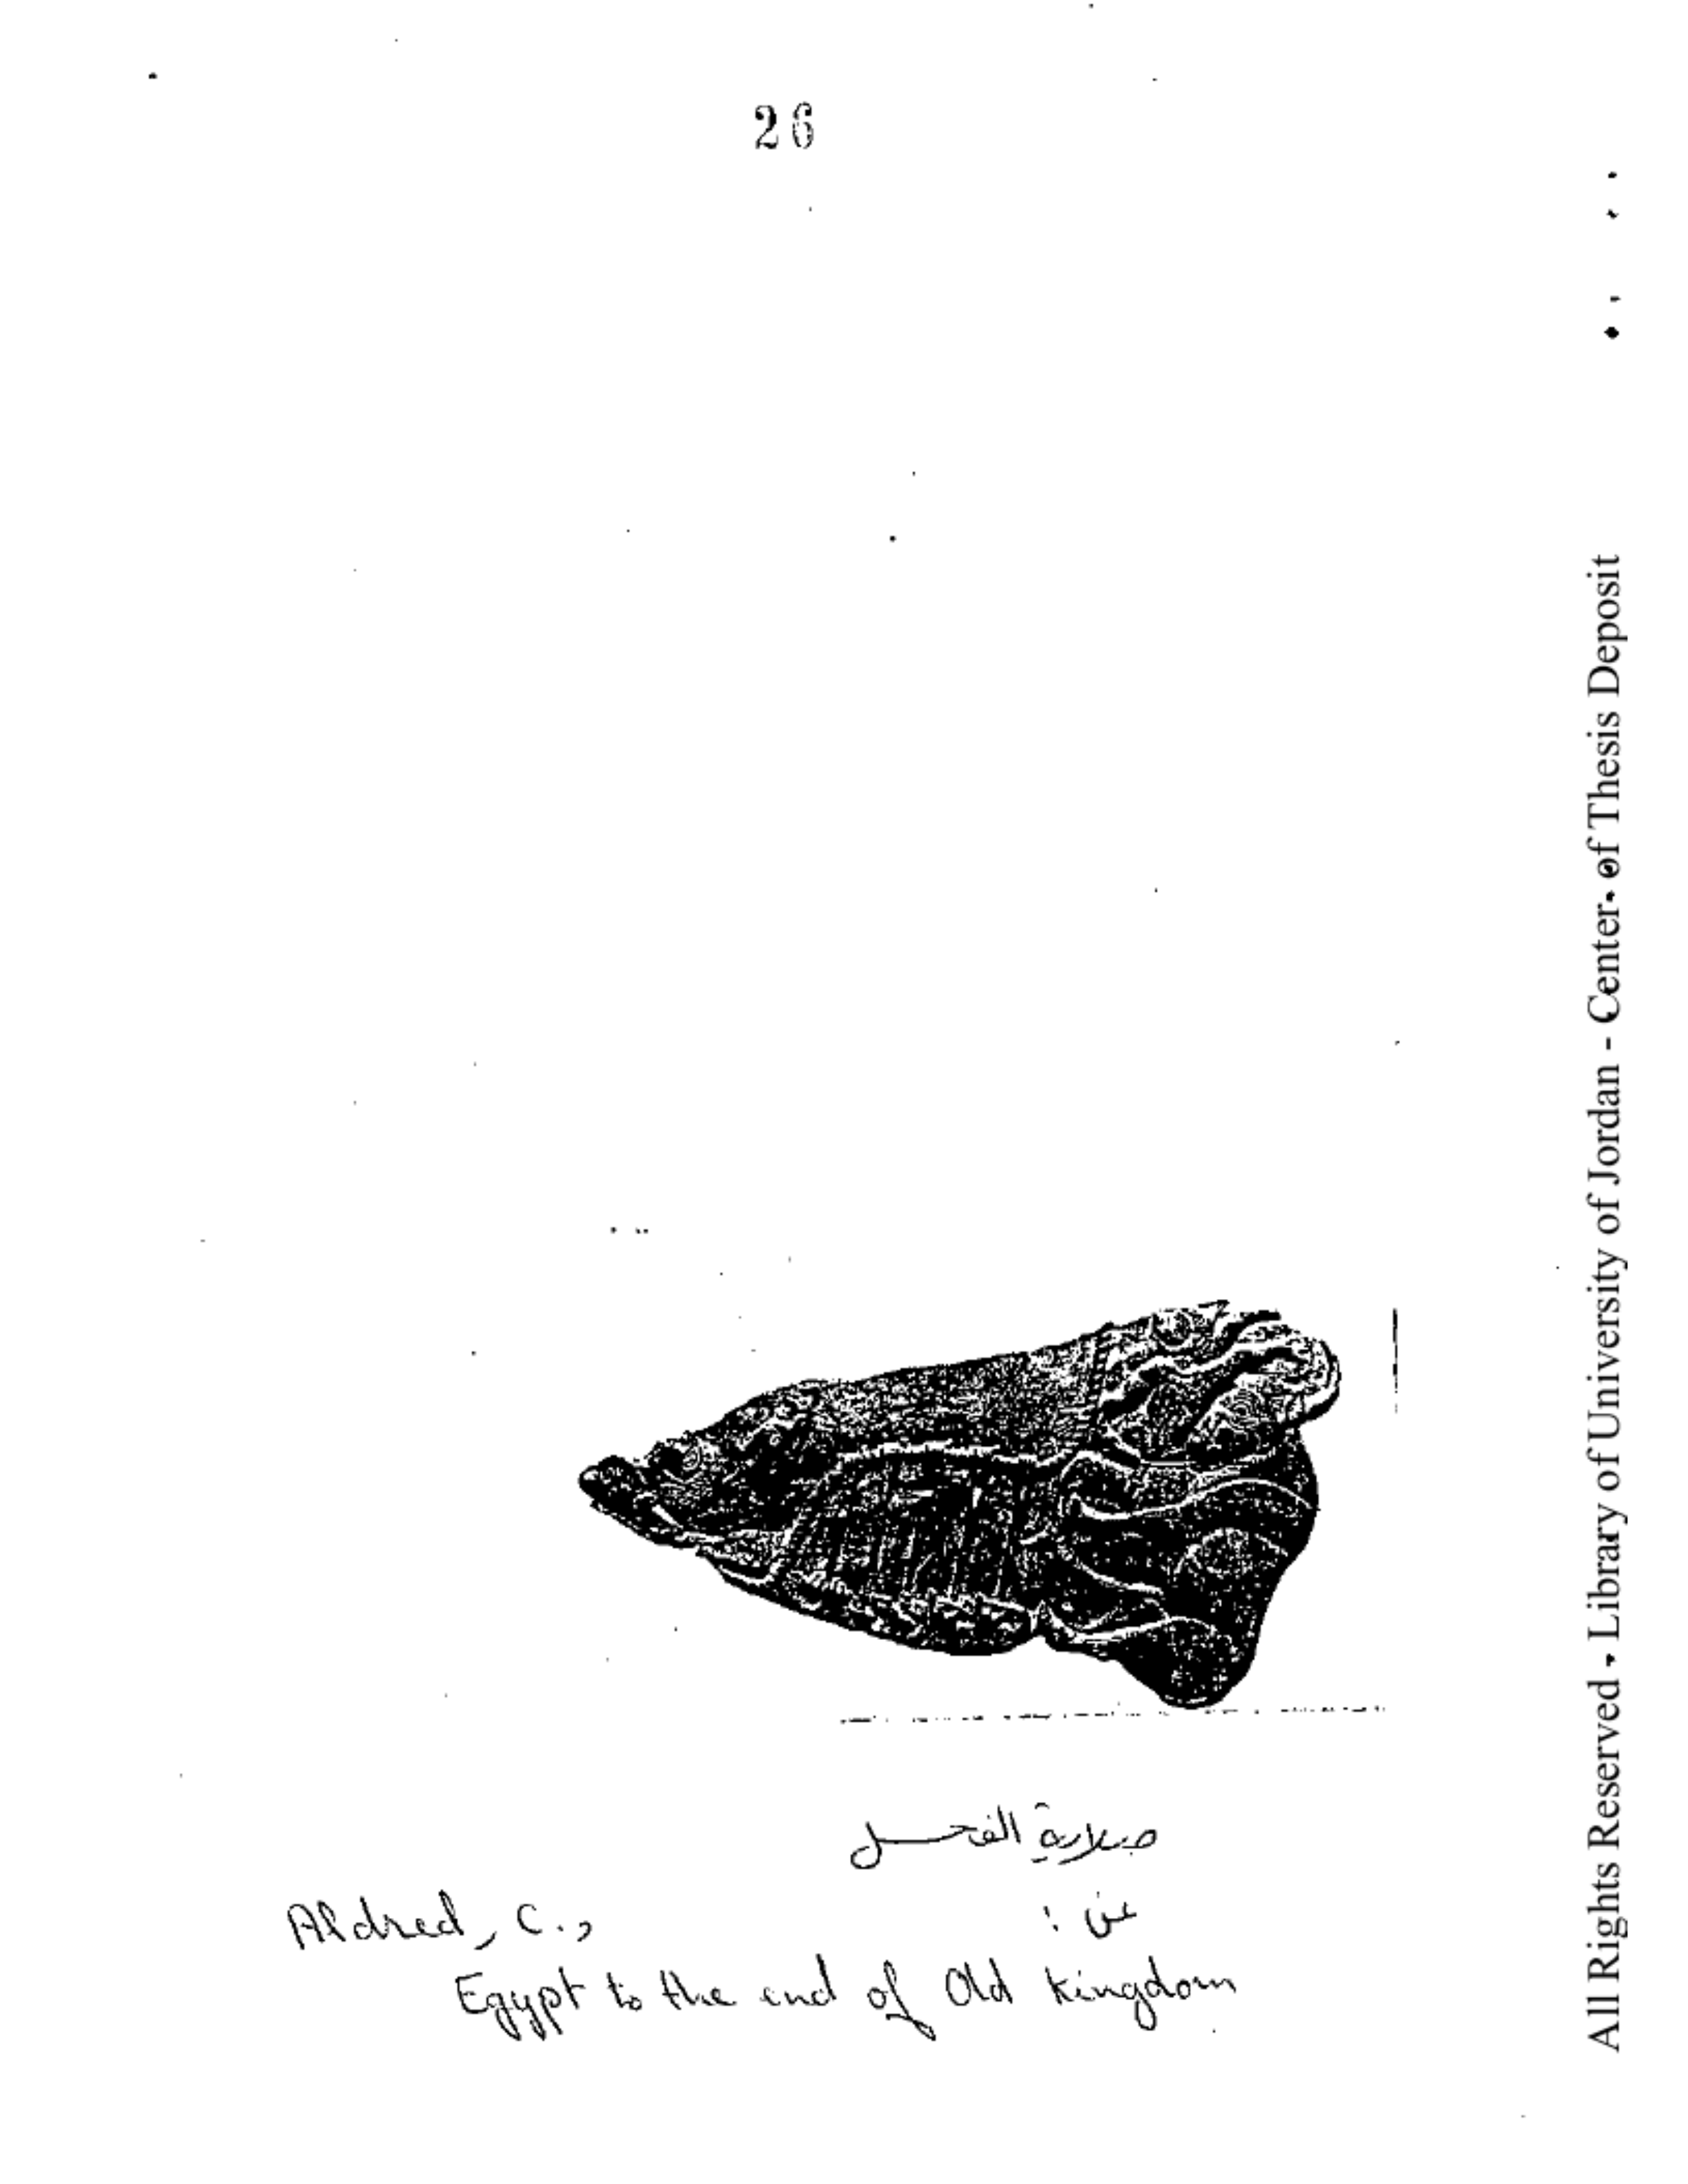 26
صلاية الفحل
عن :
Aldred, C.,
Egypt to the end of Old Kingdom
All Rights Reserved - Library of University of Jordan - Center of Thesis Deposit